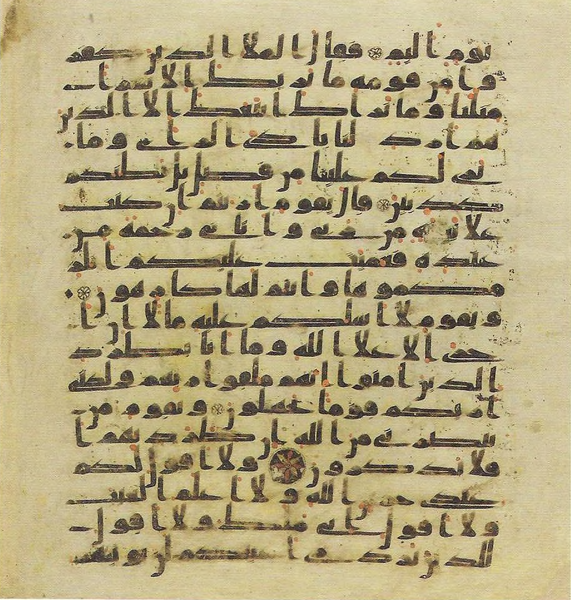 يوم اليم فقال الملا الذين كفر
وا من قومه ما نريك الا بشرا
مثلنا وما نريك اتبعك الا الذين
هم اراذلنا بادي الراي وما
نرى لكم علينا من فضل بل نظنكم
كذبين قال يقوم اريتم ان كنت
على بينة من ربي واتيني رحمة من
عنده فعميت عليكم انلز
مكموها وانتم لها كرهون
ويقوم لا اسلكم عليه مالا ان ا
جري الا على الله وما انا بطرد
الذين امنوا انهم ملقوا ربهم ولكني
اريكم قوما تجهلون ويقوم من
ينصرني من الله ان طردتهم ا
فلا تذكرون ولا اقول لكم
عندي خزين الله ولا اعلم الغيب
ولا اقول اني ملك ولا اقول
للذين تزدري اعينكم لن يوتيهم